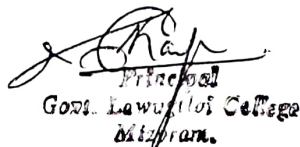 Principal
Govt. Lawngtlai College
Mizoram.